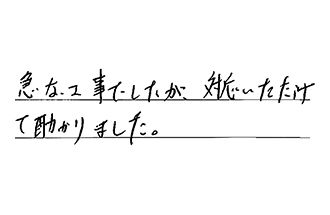 急な工事でしたが、対応いただけ
て助かりました。